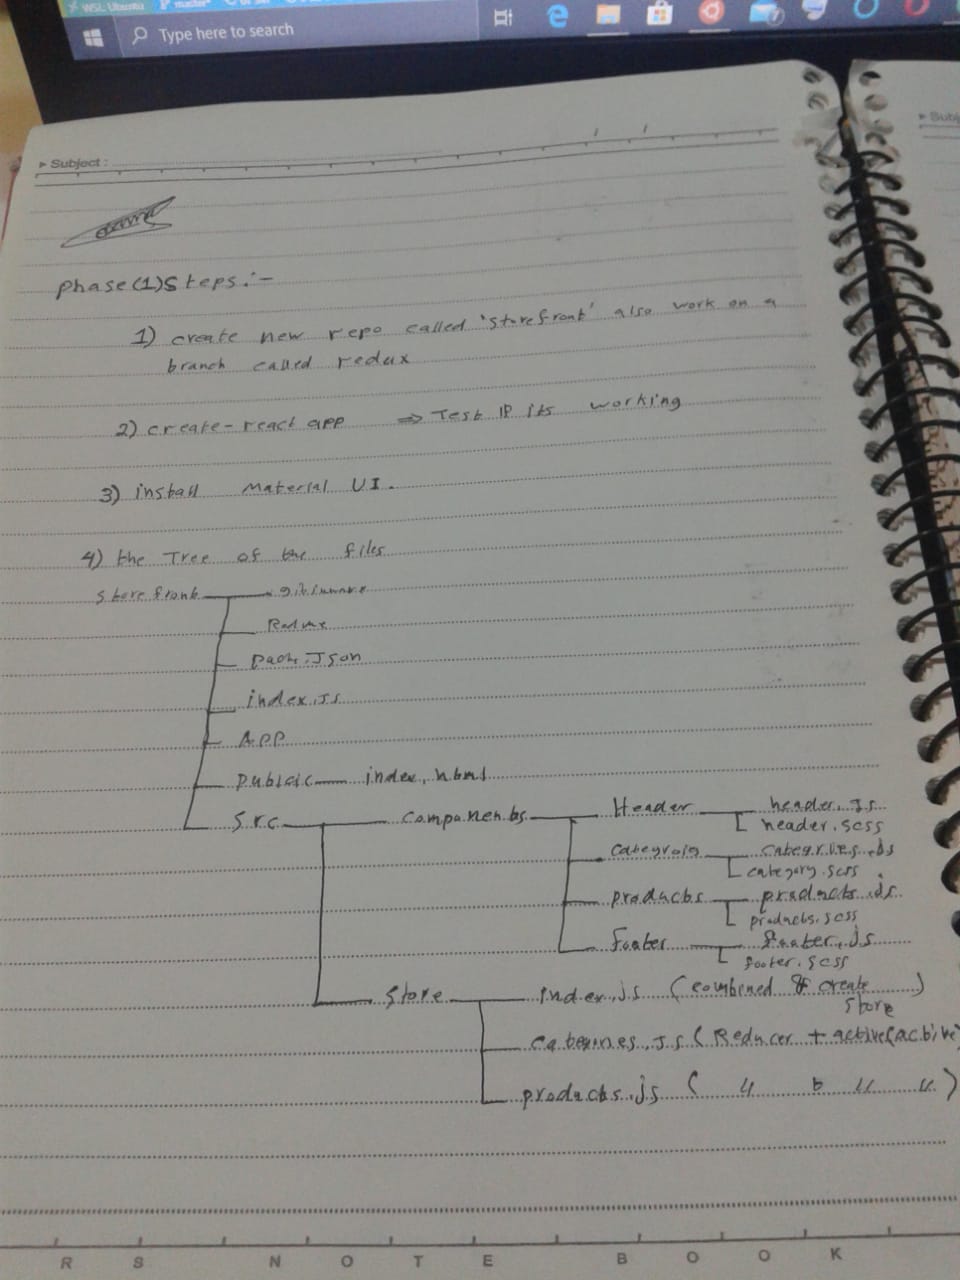 WSL Ubuntu master*
Type here to search
Subject :
Subj
phase (1) Steps :-
1) create new repo called 'storefront' also work on a
branch called redux
2) create-react app ⇒ Test IP its working
3) install Material UI.
4) the Tree of the files
storefront
Redme
Json
index.Js
App
public index.html
src components Header header.Js
header.scss
category.scss
products products.js
products.scss
footer footer.js
footer.scss
store index.js (combined & create
store)
.Js (Reducer + active(active
products.js ( 4 b 11 11 )
R S N O T E B O O K